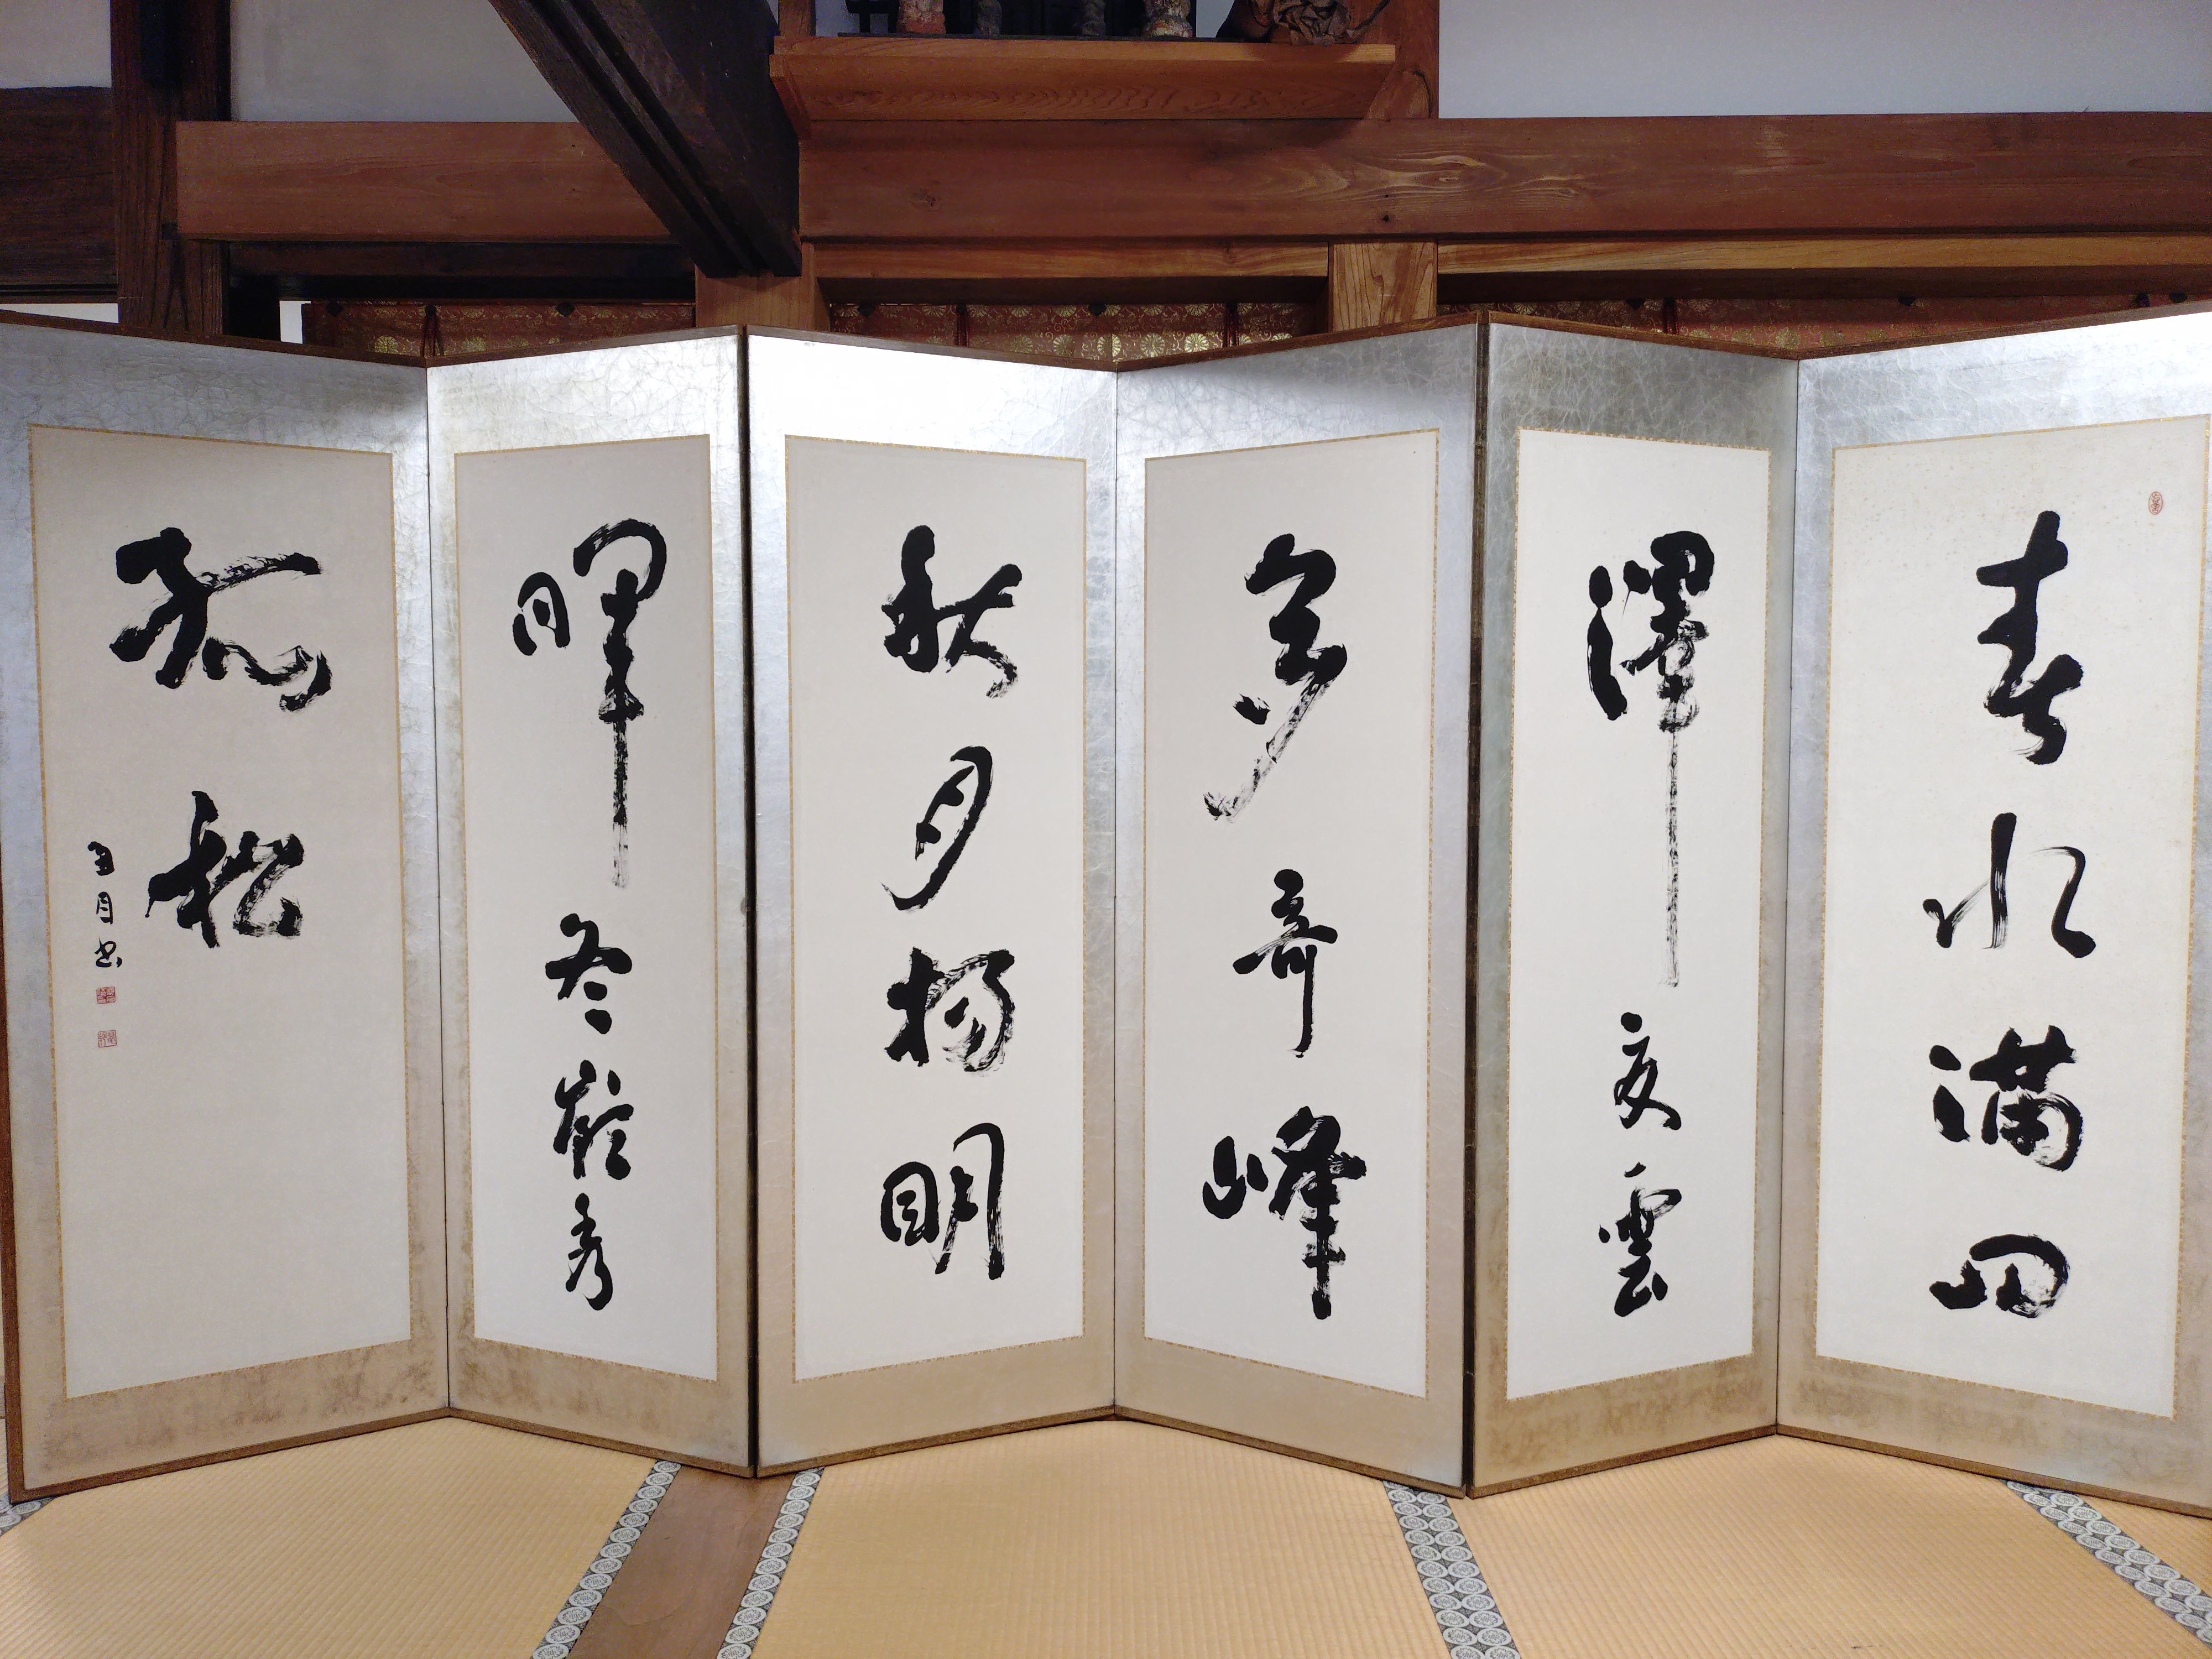 春水満四
澤夏雲
多奇峰
秋月揚明
暉冬嶺秀
孤松